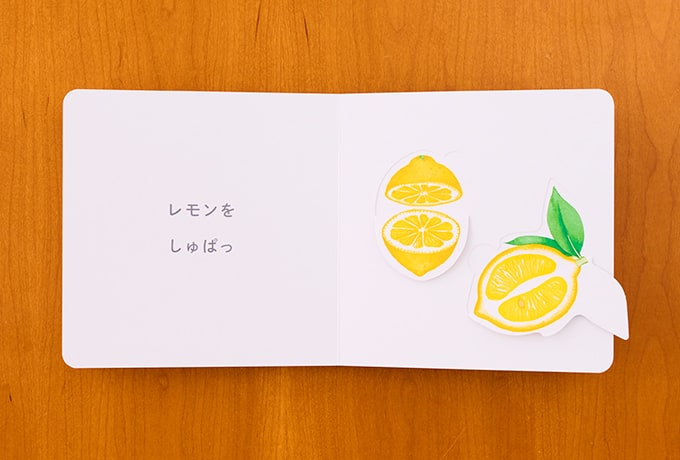 レモンを
しゅぱっ